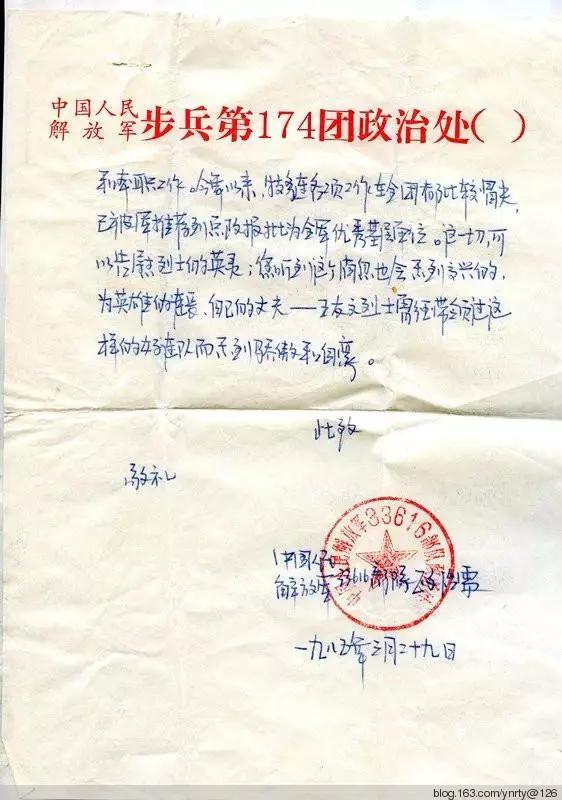 中国人民
解放军 步兵第174团政治处( )
和本职工作。今年以来,特务连各项工作在全团都比较冒尖,
已被团推荐到师政报批为全军优秀基层单位。这一切,可
以告慰烈士的英灵;您听到这个消息也会感到高兴的,
为英雄的连长、自己的丈夫——王友文烈士曾经带领过这
样的好连队而感到骄傲和自豪。
此致
敬礼
中国人民解放军33616部队
中国人民
解放军33616部队政治处
一九八五年三月二十九日
blog.163.com/ynrty@126